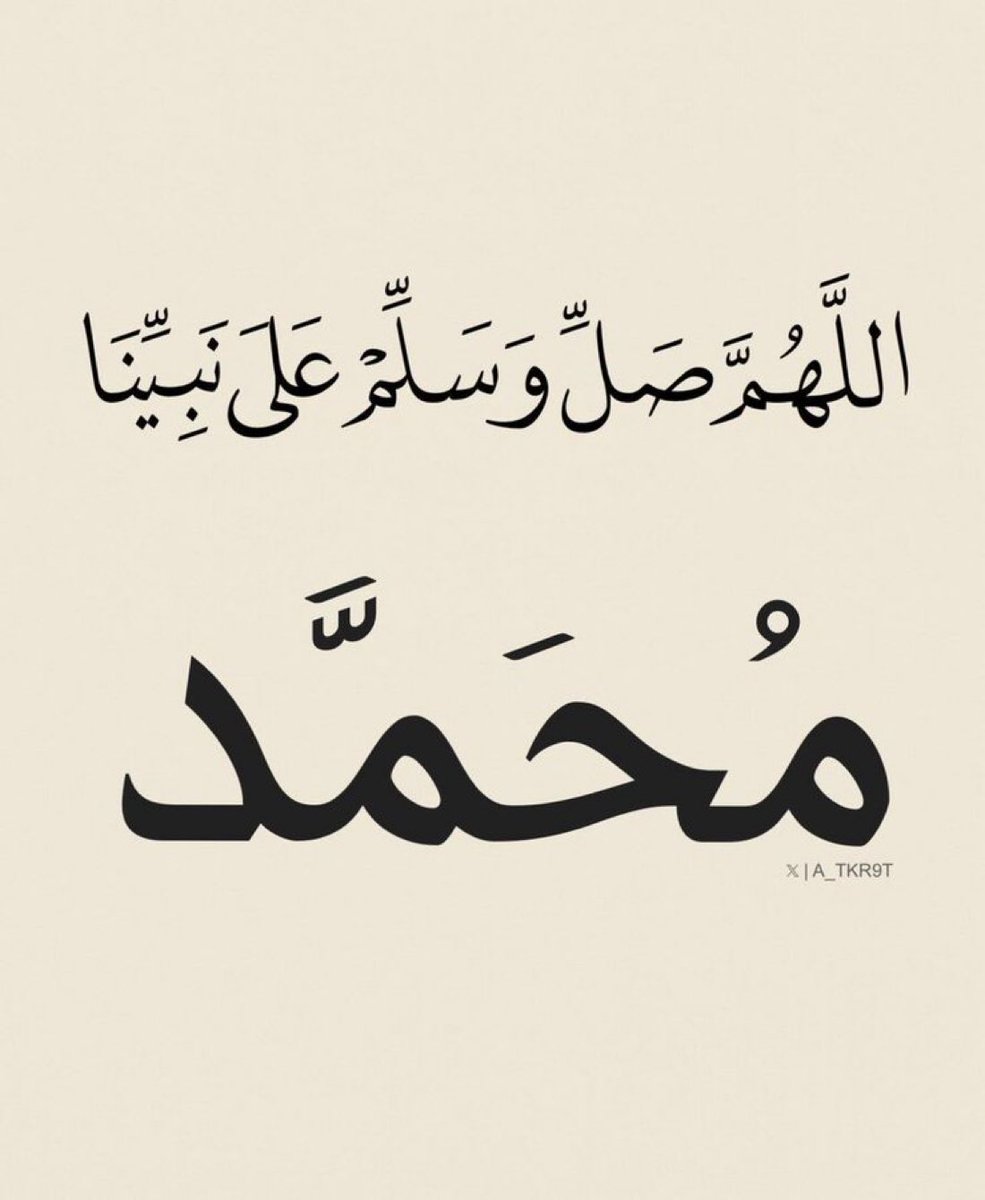 اللَّهُمَّ صَلِّ وَسَلِّمْ عَلَى نَبِيِّنَا
مُحَمَّد
𝕏 | A_TKR9T